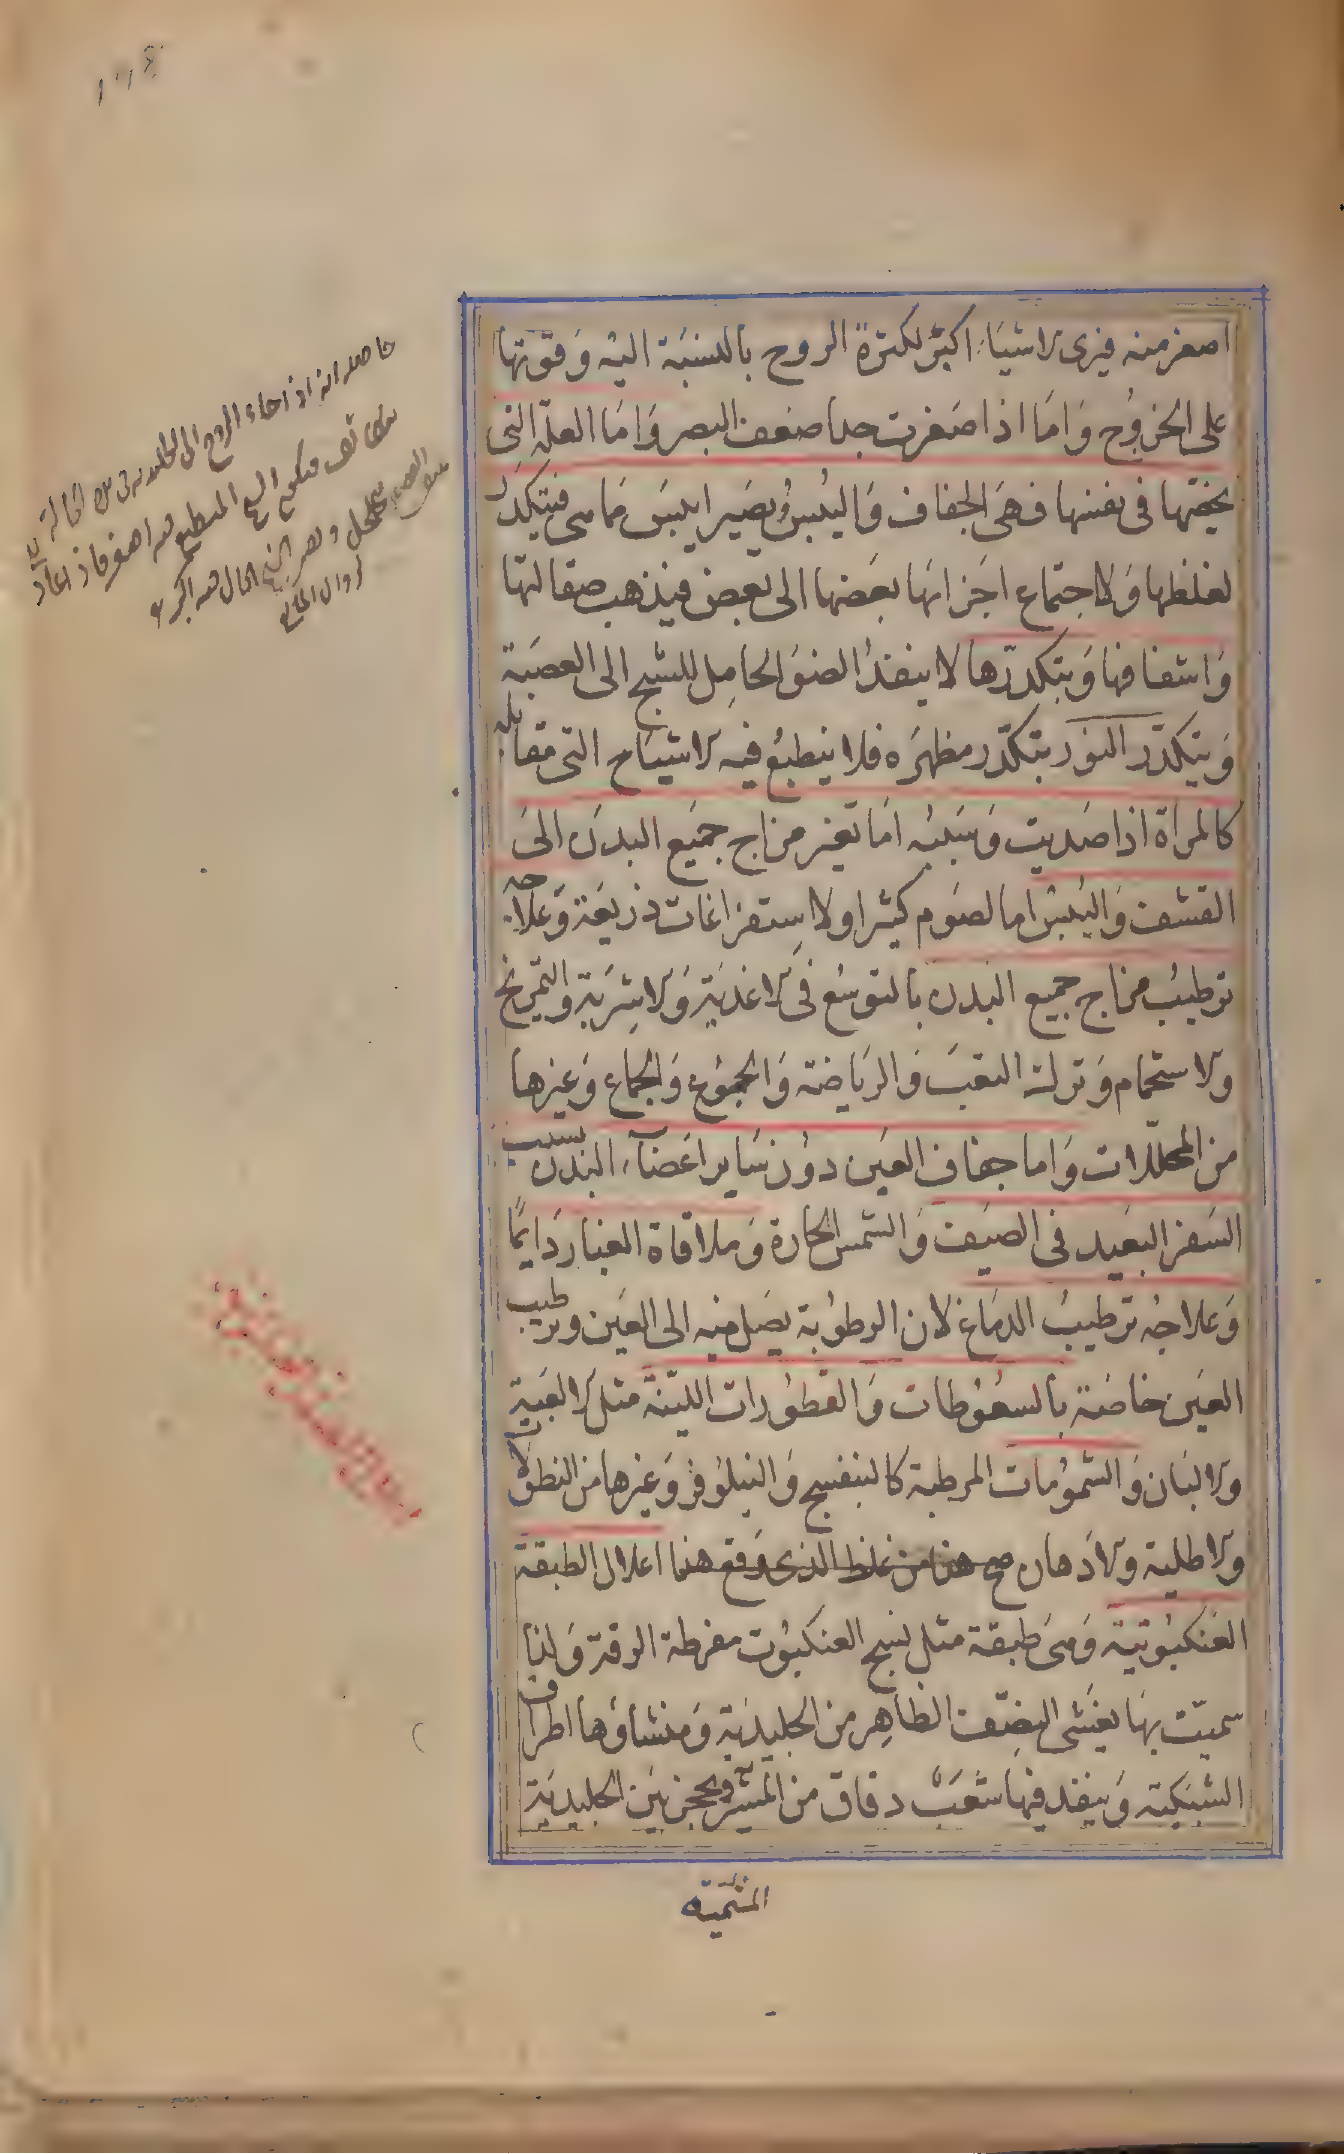 اصغر منه فيرى الاشياء اكبر لكثرة الروح بالنسبة اليه وقوتها
على الخروج واما اذا صغرت جدا ضعف البصر واما العلة التى
يخصّها فى نفسها فهى الجفاف واليبس ويصير ايبس مما هى فيتكدر
لغلظها ولاجتماع اجزائها بعضها الى بعض فيذهب صقالتها
واشفافها وبتكدرها لا ينفذ الضوء الحامل للشبح الى العصبة
ويتكدّر النور بتكدّر مظهره فلا ينطبع فيه الاشباح التى تقابله
كالمرآة اذا صديت وسببه اما تغير مزاج جميع البدن الى
القشف واليبس اما لصوم كثير او لاستفراغات ذريعة وعلاجه
ترطيب مزاج جميع البدن بالتوسع فى الاغذية والاشربة والتمريخ
والاستحمام وترك التعب والرياضة والجوع والجماع وغيرها
من المحللات واما جفاف العين دون ساير اعضاء البدن بسبب
السفر البعيد فى الصيف والشمس الحارة وملاقاة الغبار دايما
وعلاجه ترطيب الدماغ لان الرطوبة يصل منه الى العين وترطيب
العين خاصة بالسعوطات والقطورات اللينة مثل الالعبة
والالبان والشمومات المرطبة كالبنفسج والنيلوفر وغيرها من النطولات
والاطلية والادهان صح هذا من غلط الذى وقع هنا اعلال الطبقة
العنكبوتية وهى طبقة مثل نسج العنكبوت مفرطة الرقة ولذا
سميت بها يغشى النصف الظاهر من الجليدية ومنشاؤها اطراف
الشبكية وينفذ فيها شعب دقاق من المشيمة ويحجز بين الجليدية
حاصله انه اذا جاء الروح الى الجليدية فى هذه الحالة